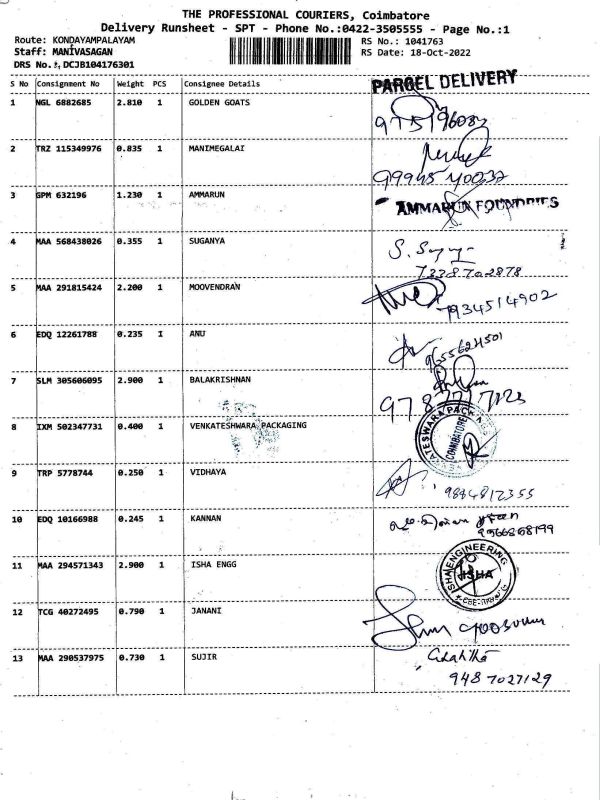 THE PROFESSIONAL COURIERS, Coimbatore
Delivery Runsheet - SPT - Phone No.:0422-3505555 - Page No.:1
Route: KONDAYAMPALAYAM RS No.: 1041763
Staff: MANIVASAGAN RS Date: 18-Oct-2022
DRS No.:DCJB104176301
S No Consignment No Weight PCS Consignee Details PARCEL DELIVERY
1 NGL 6882685 2.810 1 GOLDEN GOATS
2 TRZ 115349976 0.835 1 MANIMEGALAI
3 GPM 632196 1.230 1 AMMARUN AMMARUN FOUNDRIES
4 MAA 568438026 0.355 1 SUGANYA
7338702878
5 MAA 291815424 2.200 1 MOOVENDRAN
7934514902
6 EDQ 12261788 0.235 1 ANU
9655624501
7 SLM 305606095 2.900 1 BALAKRISHNAN
8 IXM 502347731 0.400 1 VENKATESHWARA PACKAGING COIMBATORE
9 TRP 5778744 0.250 1 VIDHAYA
9894812355
10 EDQ 10166988 0.245 1 KANNAN
9566868199
11 MAA 294571343 2.900 1 ISHA ENGG ISHA ENGINEERING ISHA
12 TCG 40272495 0.790 1 JANANI
13 MAA 290537975 0.730 1 SUJIR
9487027129